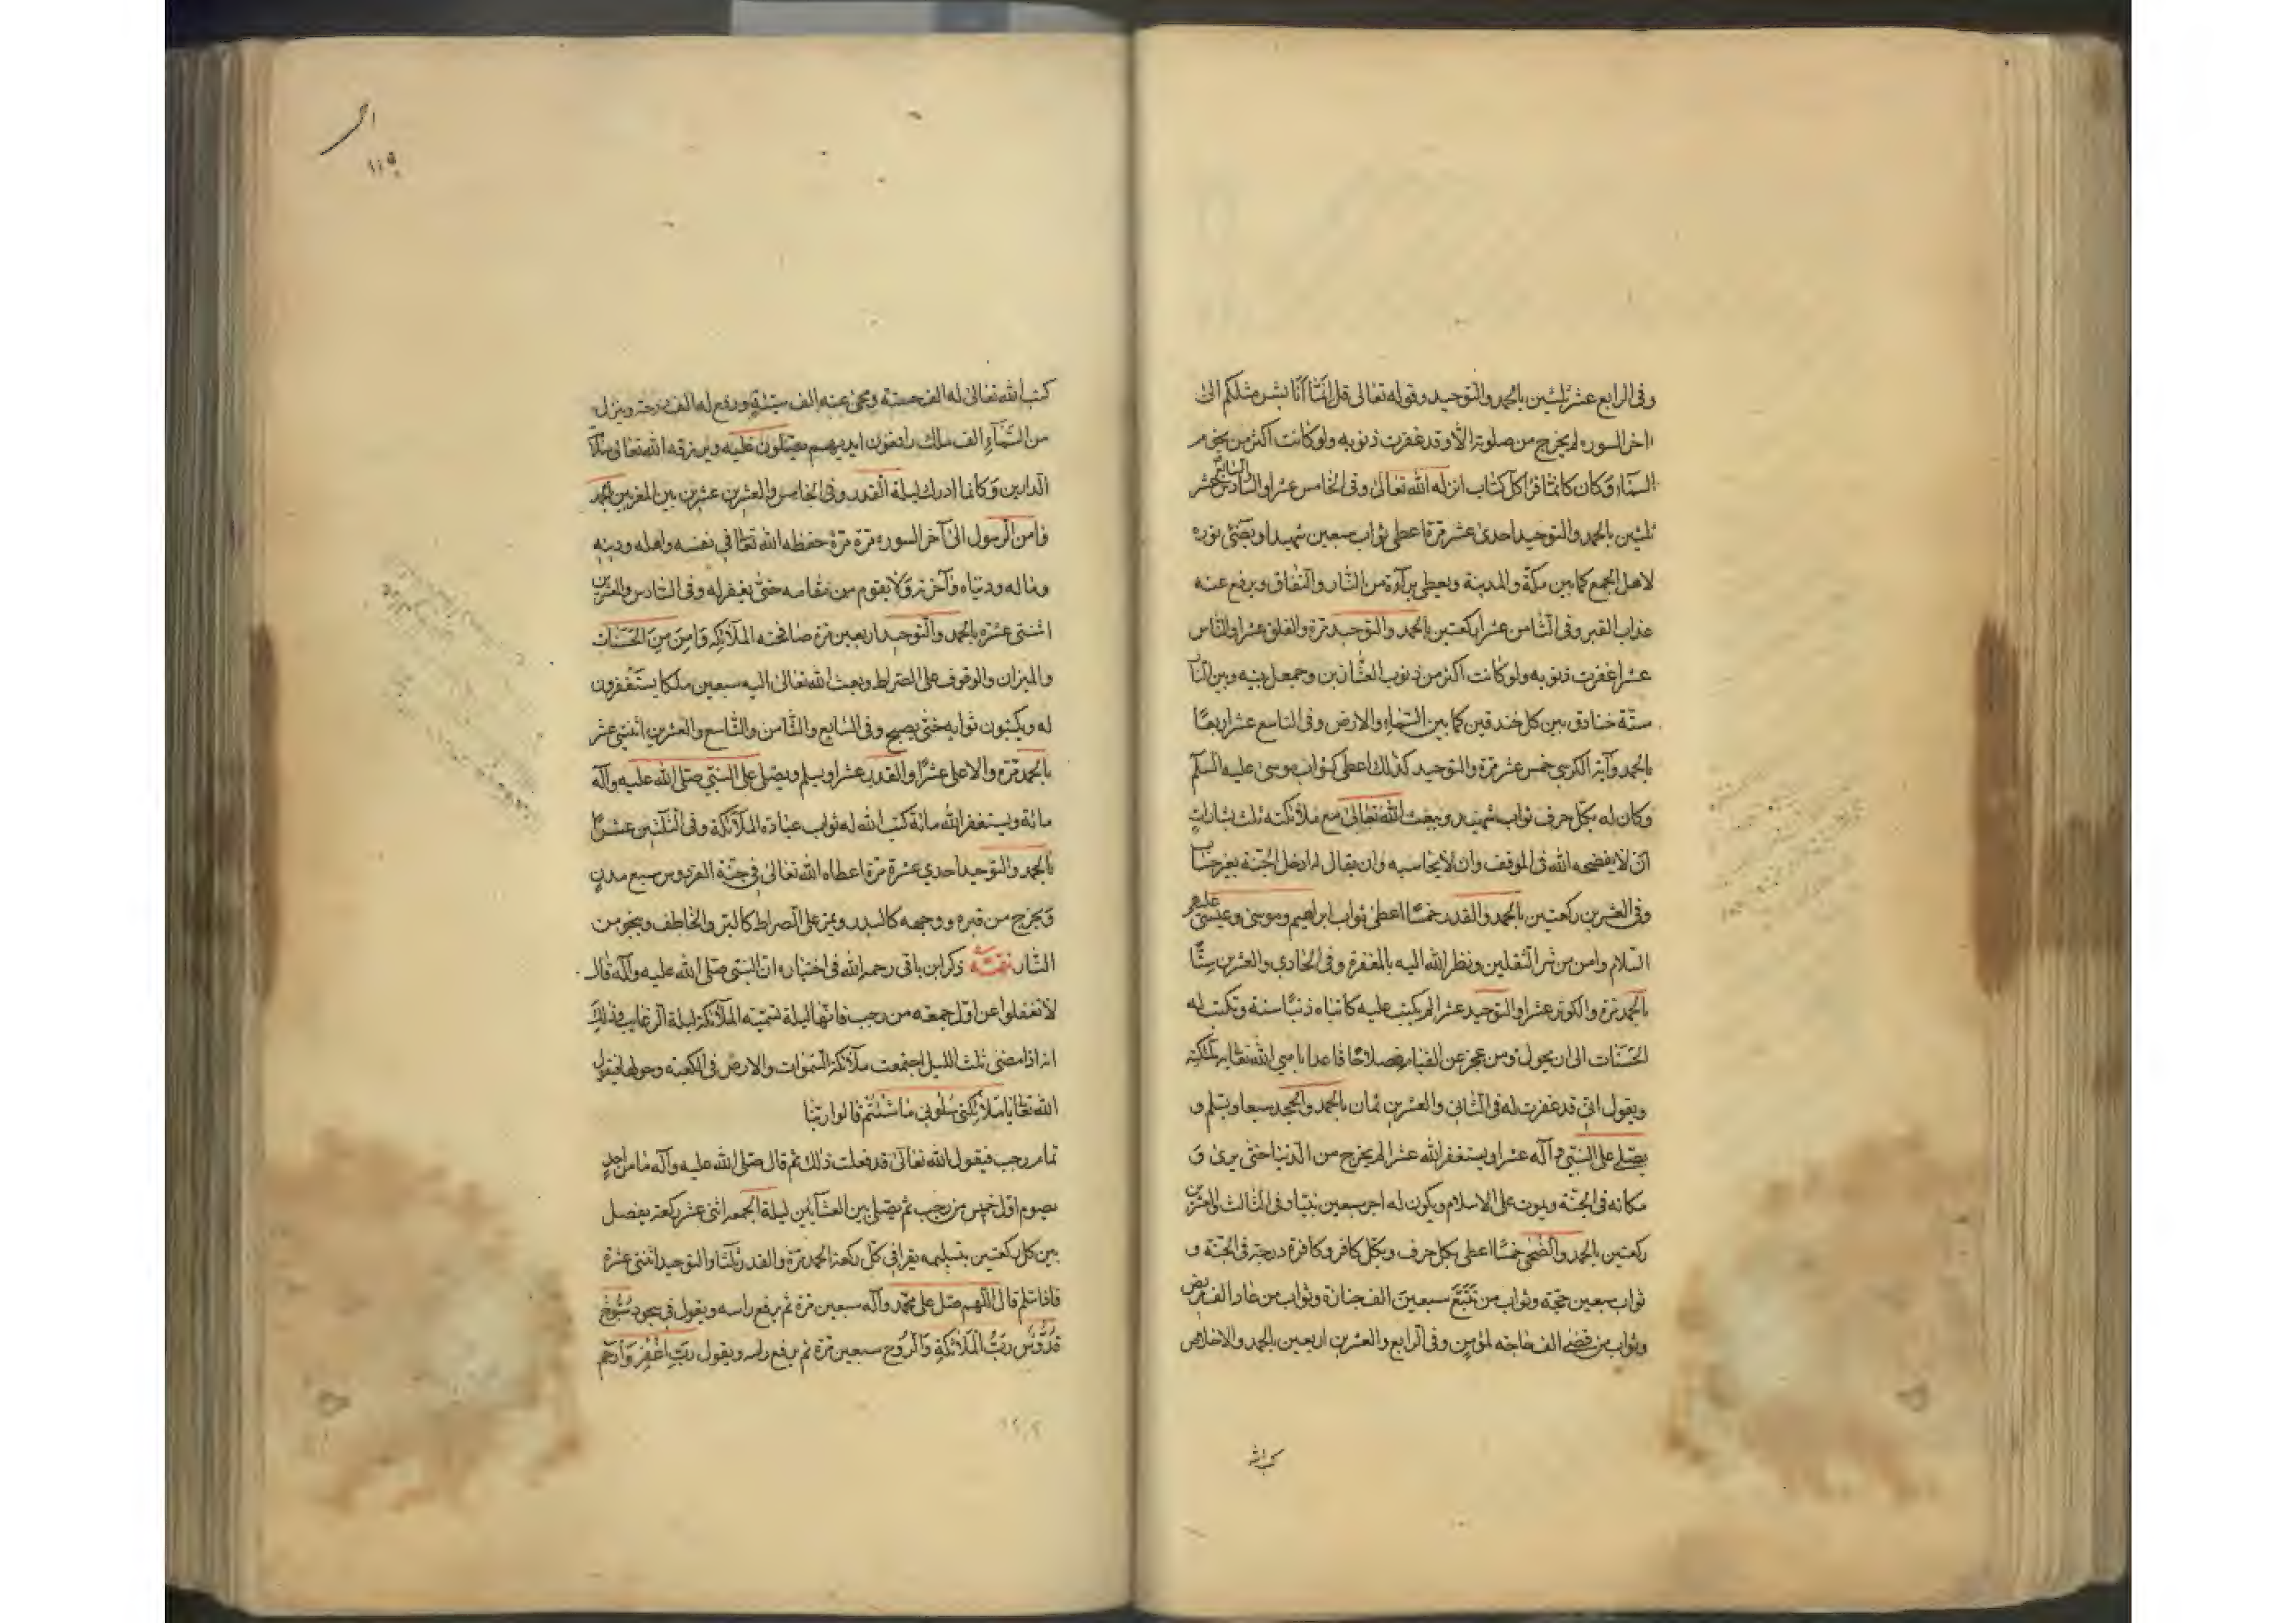 وفى الرابع عشر ثلثين بالحمد والتوحيد وقوله تعالى قل انما انا بشر مثلكم الى
اخر السوره لم يخرج من صلوته الا وقد غفرت ذنوبه ولو كانت اكثر من نجوم
السماء وكان كانما قرا كل كتاب انزله الله تعالى وفى الخامس عشر او السادس عشر
ثلثين بالحمد والتوحيد احدى عشر مرة اعطى ثواب سبعين شهيدا ويضئ نوره
لاهل الجمع كما بين مكة والمدينة ويعطى براءة من النار والنفاق ويرفع عنه
عذاب القبر وفى الثامن عشر ركعتين بالحمد والتوحيد مرة والفلق عشرا والناس
عشرا غفرت ذنوبه ولو كانت اكثر من ذنوب العشارين وجعل بينه وبين النار
ستة خنادق بين كل خندقين كما بين السماء والارض وفى التاسع عشر اربعا
بالحمد وآية الكرسى خمس عشر مرة والتوحيد كذلك اعطى كثواب موسى عليه السلم
وكان له بكل حرف ثواب شهيد ويبعث الله تعالى مع ملائكته ثلث بشارات
ان لا يفضحه الله فى الموقف وان لا يحاسبه وان يقال له ادخل الجنة بغير حساب
وفى العشرين ركعتين بالحمد والقدر خمسا اعطى ثواب ابراهيم وموسى وعيسى عليهم
السلام وامن من شر الثقلين ونظر الله اليه بالمغفرة وفى الحادى والعشرين ستا
بالحمد مرة والكوثر عشرا والتوحيد عشرا لم يكتب عليه كاتباه ذنبا سنة وتكتب له
الحسنات الى ان يحول ومن عجز عن القيام فصلاها قاعدا باهى الله تعا به ملئكته
ويقول انى قد غفرت له فى الثانى والعشرين ثمان بالحمد والجحد سبعا ويسلم و
يصلى على النبى وآله عشرا ويستغفر الله عشرا لم يخرج من الدنيا حتى يرى و
مكانه فى الجنة ويموت على الاسلام ويكون له اجر سبعين نبيا وفى الثالث والعشرين
ركعتين بالحمد والضحى خمسا اعطى بكل حرف وبكل كافر وكافرة درجة فى الجنة و
ثواب سبعين حجة وثواب من تتبع سبعين الف جنازة وثواب من عاد الف مريض
وثواب من قضى الف حاجه لمؤمن وفى الرابع والعشرين اربعين بالحمد والاخلاص
كتب الله
كتب الله تعالى له الف حسنة ومحى عنه الف سيئة ورفع له الف درجة وينزل
من السماء الف ملك رافعون ايديهم يصلون عليه ويرزقه الله تعالى سلامة
الدارين وكانما ادرك ليلة القدر وفى الخامس والعشرين عشرين بين المغربين بالحمد
وامن الرسول الى آخر السوره مرة مرة حفظه الله تعالى فى نفسه واهله ودينه
وماله ودنياه وآخرته ولا يقوم من مقامه حتى يغفر له وفى السادس والعشرين
اثنتى عشره بالحمد والتوحيد اربعين مرة صافحته الملائكه وامن من الحساب
والميزان والوقوف على الصراط وبعث الله تعالى اليه سبعين ملكا يستغفرون
له ويكتبون ثوابه حتى يصبح وفى السابع والثامن والتاسع والعشرين اثنتى عشر
بالحمد مرة والاعلى عشرا والقدر عشرا ويسلم ويصلى على النبى صلى الله عليه وآله
مائة ويستغفر الله مائة كتب الله له ثواب عبادة الملائكة وفى الثلثين عشرا
بالحمد والتوحيد احدى عشرة مرة اعطاه الله تعالى فى جنة الفردوس سبع مدن
ويخرج من قبره ووجهه كالبدر ويمر على الصراط كالبرق الخاطف وينجو من
النار تتمة ذكر ابن باقى رحمه الله فى اختياره ان النبى صلى الله عليه وآله قال
لا تغفلوا عن اول جمعه من رجب فانها ليلة تسميه الملائكة ليلة الرغايب وذلك
انه اذا مضى ثلث الليل اجتمعت ملائكة السموات والارض فى الكعبه وحولها فيقول
الله تعا يا ملائكتى سلونى ما شئتم قالوا ربنا
تمام رجب فيقول الله تعالى قد فعلت ذلك ثم قال صلى الله عليه وآله ما من احد
يصوم اول خميس من رجب ثم يصلى بين العشائين ليلة الجمعه اثنى عشر ركعة يفصل
بين كل ركعتين بتسليمه يقرا فى كل ركعة الحمد مرة والقدر ثلثا والتوحيد اثنتى عشرة
فاذا سلم قال اللهم صل على محمد وآله سبعين مرة ثم يرفع راسه ويقول فى سجوده سبوح
قدوس رب الملائكة والروح سبعين مرة ثم يرفع راسه ويقول رب اغفر وارحم